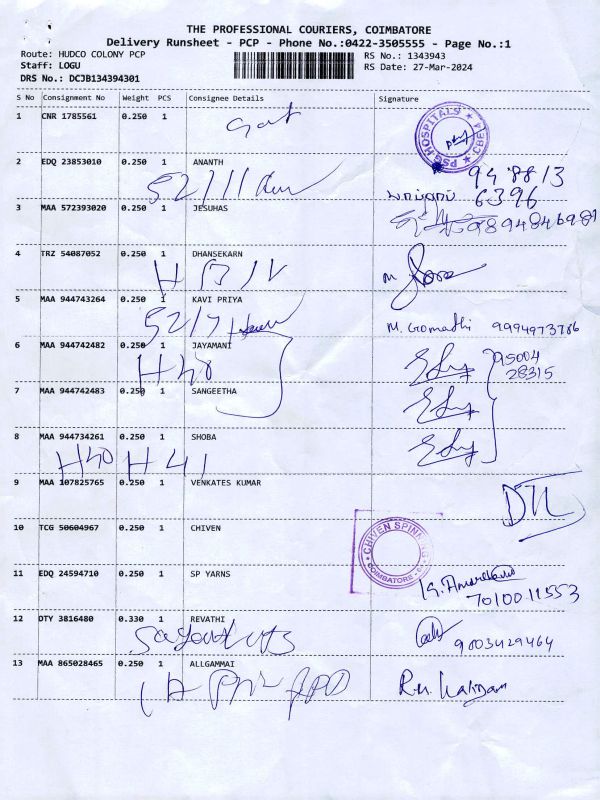 THE PROFESSIONAL COURIERS, COIMBATORE
Delivery Runsheet - PCP - Phone No.:0422-3505555 - Page No.:1
Route: HUDCO COLONY PCP
RS No.: 1343943
Staff: LOGU
RS Date: 27-Mar-2024
DRS No.: DCJB134394301
S No Consignment No Weight PCS Consignee Details Signature
1 CNR 1785561 0.250 1
PSG HOSPITALS CBE-4
2 EDQ 23853010 0.250 1 ANANTH
52/11
94 88 13
6396
3 MAA 572393020 0.250 1 JESUHAS
9894846981
4 TRZ 54087052 0.250 1 DHANSEKARN
M
5 MAA 944743264 0.250 1 KAVI PRIYA
52/7
M. Gomathi 9994973786
6 MAA 944742482 0.250 1 JAYAMANI
H40
95004
28315
7 MAA 944742483 0.250 1 SANGEETHA
8 MAA 944734261 0.250 1 SHOBA
H40 H41
9 MAA 107825765 0.250 1 VENKATES KUMAR
10 TCG 50604967 0.250 1 CHIVEN
CHIVEN SPINN
COIMBATORE
11 EDQ 24594710 0.250 1 SP YARNS
7010011553
12 DTY 3816480 0.330 1 REVATHI
9003429464
13 MAA 865028465 0.250 1 ALLGAMMAI